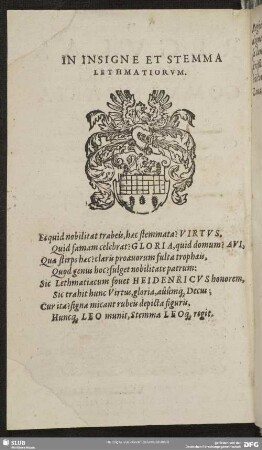 IN INSIGNE ET STEMMA
LETHMATIORVM.
Ecquid nobilitat trabeis, hæc stemmata? VIRTVS,
Quid famam celebrat? GLORIA, quid domum? AVI,
Quæ stirps hæc? claris proauorum fulta trophæis,
Quod genus hoc? fulget nobilitate patrum:
Sic Lethmatiacum fouet HEIDENRICVS honorem,
Sic trahit hunc Virtus, gloria, auûmq́; Decus;
Cur ita? signa micant rubeis depicta figuris,
Huncq́; LEO munit, Stemma LEOq́; regit.
SLUB